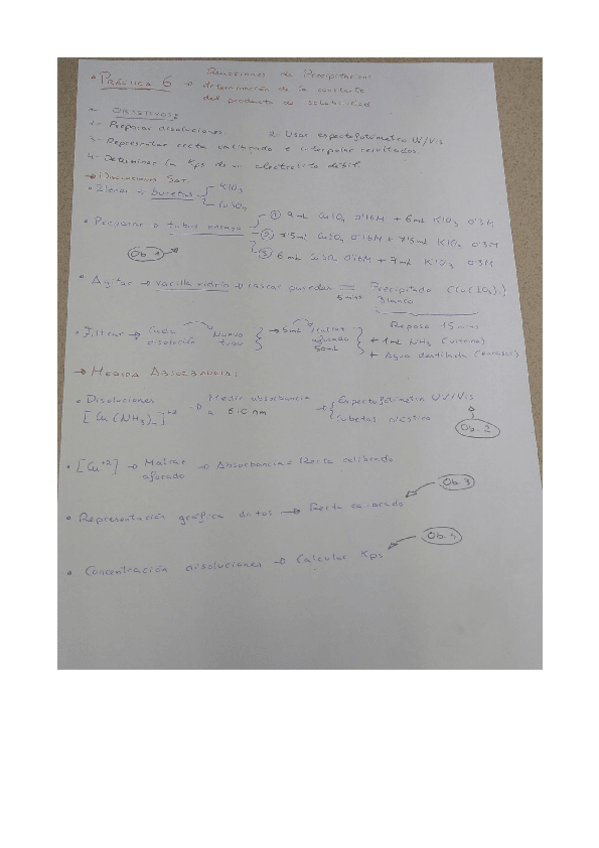 • PRÁCTICA 6 → Reacciones de Precipitación
determinación de la constante
del producto de solubilidad
OBJETIVOS:
1- Preparar disoluciones. 2. Usar espectofotómetro UV/Vis
3- Representar recta calibrado e interpolar resultados.
4- Determinar la Kps de un electrolito débil.
→ Disoluciones Sat
• Llenar buretas KIO3
CuSO4
• Preparar tubos ensayo ① 9 mL CuSO4 0'16M + 6 mL KIO3 0'3M
② 7'5 mL CuSO4 0'16M + 7'5 mL KIO3 0'3M
③ 6 mL CuSO4 0'16M + 9 mL KIO3 0'3M
Ob. 1
• Agitar → varilla vidrio → rascar paredes 5 min Precipitado (Cu(IO3)2)
Blanco
Reposo 15 min
• Filtrar → Cada disolución nuevo tubo → 5 mL matraz aforado 50 mL
+ 1 mL NH3 (vitrina)
+ Agua destilada (enrase)
→ MEDIDA ABSORBANCIA:
• Disoluciones → Medir absorbancia → Espectofotómetro UV/Vis
[Cu(NH3)n]+2 a 610 nm Cubetas plástico
Ob. 2
• [Cu+2] → Matraz aforado → Absorbancia = Recta calibrado
Ob. 3
• Representación gráfica datos → Recta calibrado
Ob. 4
• Concentración disoluciones → Calcular Kps